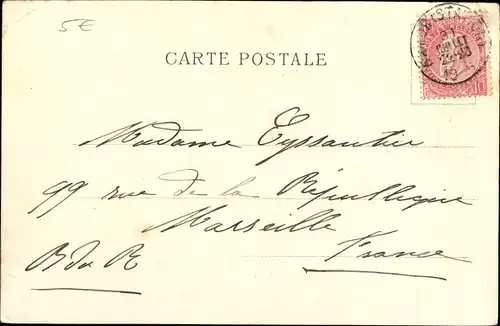 5€
CARTE POSTALE
JUIL
10
Madame Eyssautier
99 rue de la République
Marseille
B du R
France